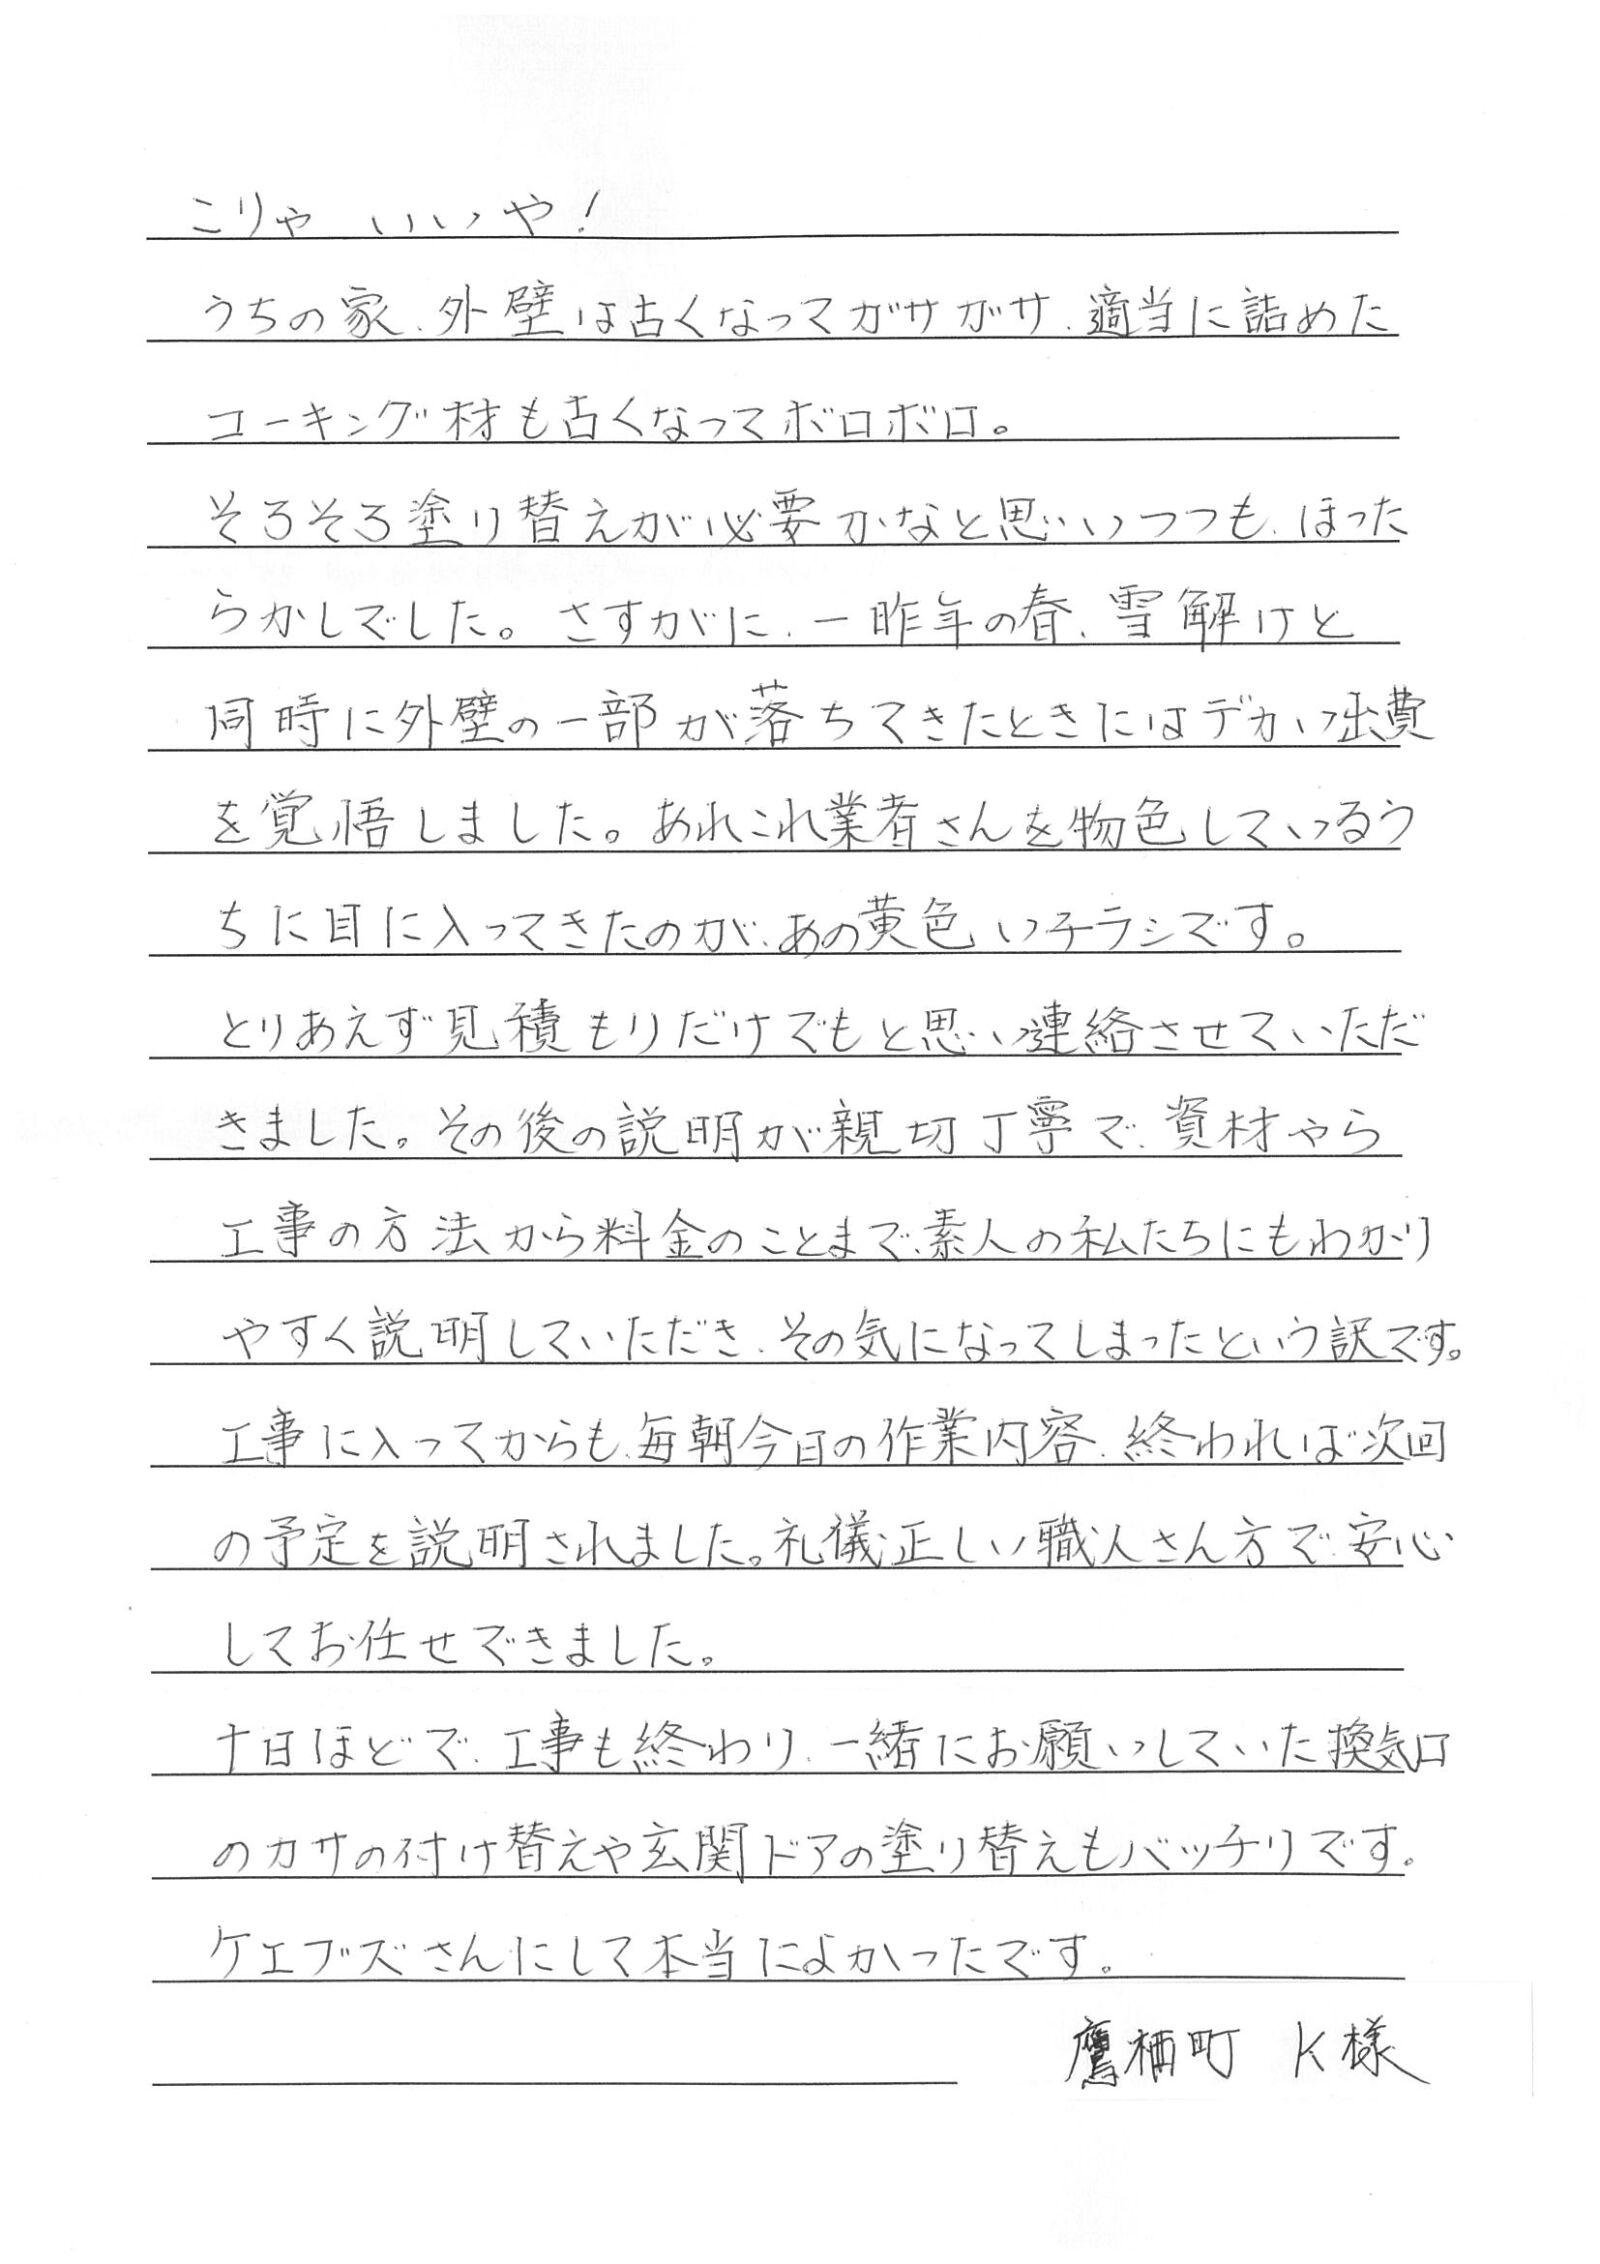 こりゃ いいや!
うちの家、外壁は古くなってガサガサ、適当に詰めた
コーキング材も古くなってボロボロ。
そろそろ塗り替えが必要かなと思いつつも、ほった
らかしでした。さすがに、一昨年の春、雪解けと
同時に外壁の一部が落ちてきたときにはデカい出費
を覚悟しました。あれこれ業者さんを物色しているう
ちに目に入ってきたのが、あの黄色いチラシです。
とりあえず見積もりだけでもと思い連絡させていただ
きました。その後の説明が親切丁寧で、資材やら
工事の方法から料金のことまで、素人の私たちにもわかり
やすく説明していただき、その気になってしまったという訳です。
工事に入ってからも、毎朝今日の作業内容、終われば次回
の予定を説明されました。礼儀正しい職人さん方で、安心
してお任せできました。
十日ほどで、工事も終わり、一緒にお願いしていた換気口
のカサの付け替えや玄関ドアの塗り替えもバッチリです。
ケエブズさんにして本当によかったです。
鷹栖町 K様